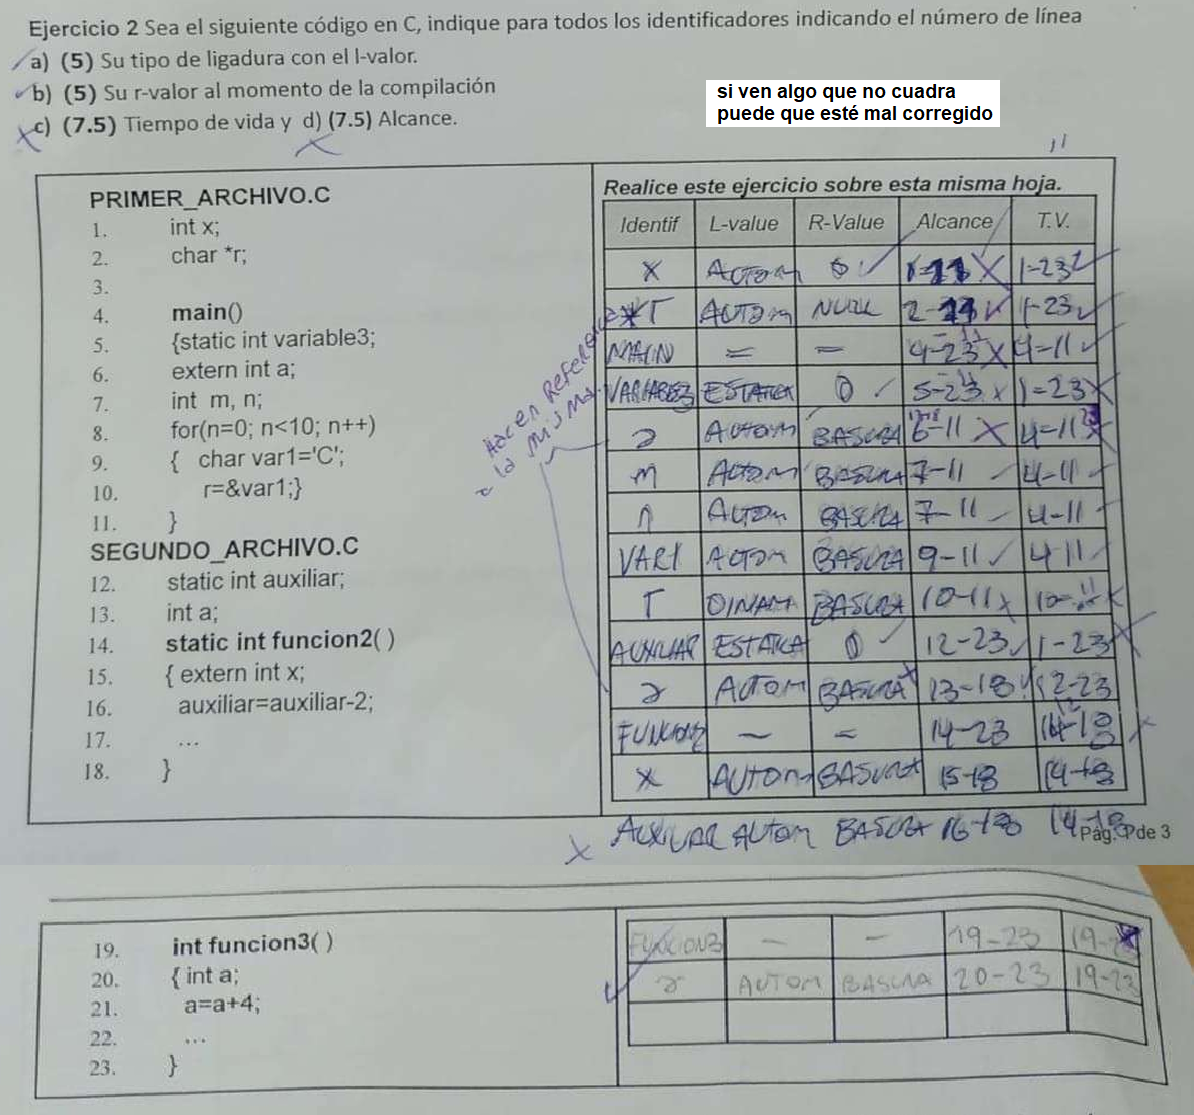 Ejercicio 2 Sea el siguiente código en C, indique para todos los identificadores indicando el número de línea
a) (5) Su tipo de ligadura con el l-valor.
b) (5) Su r-valor al momento de la compilación
c) (7.5) Tiempo de vida y d) (7.5) Alcance.
si ven algo que no cuadra
puede que esté mal corregido
PRIMER_ARCHIVO.C
1. int x;
2. char *r;
3.
4. main()
5. {static int variable3;
6. extern int a;
7. int m, n;
8. for(n=0; n<10; n++)
9. { char var1='C';
10. r=&var1;}
11. }
SEGUNDO_ARCHIVO.C
12. static int auxiliar;
13. int a;
14. static int funcion2( )
15. { extern int x;
16. auxiliar=auxiliar-2;
17. ...
18. }
Realice este ejercicio sobre esta misma hoja.
Identif L-value R-Value Alcance T.V.
x AUTOM 0 1-23
*r AUTOM NULL 1-23
MAIN = - 4-23 4-11
VARIABLE3 ESTATICA 0 5-23 1-23
a AUTOM BASURA 6-11 4-11
m AUTOM BASURA 7-11 4-11
n AUTOM BASURA 7-11 4-11
VAR1 AUTOM BASURA 9-11 4-11
r DINAM BASURA 10-11
AUXILIAR ESTATICA 0 12-23 1-23
a AUTOM BASURA 13-18 12-23
FUNCION2 - = 14-23
x AUTOM BASURA 15-18 14-18
AUXILIAR AUTOM BASURA 16-18 14-18
Hacen Referencia
a la misma.
Pág. de 3
19. int funcion3( )
20. { int a;
21. a=a+4;
22. ...
23. }
FUNCION3 - - 19-23
a AUTOM BASURA 20-23 19-23